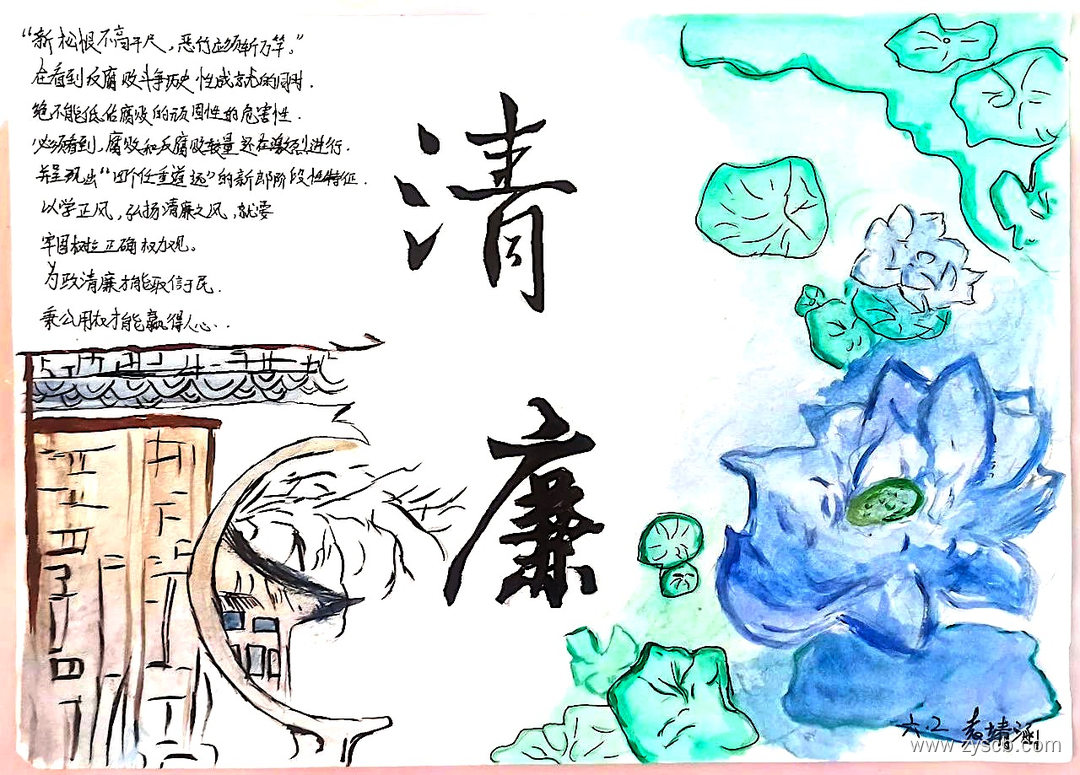 “新松恨不高千尺，恶竹应须斩万竿。”
在看到反腐败斗争历史性成就的同时.
绝不能低估腐败的顽固性的危害性.
必须看到,腐败和反腐败较量还在激烈进行.
并呈现出“四个任重道远”的新 阶段性特征.
以学正风,弘扬清廉之风,就要
牢固树立正确权力观。
为政清廉才能取信于民.
秉公用权才能赢得人心..
清
廉
六.2 靖涵
www.zysc6.com